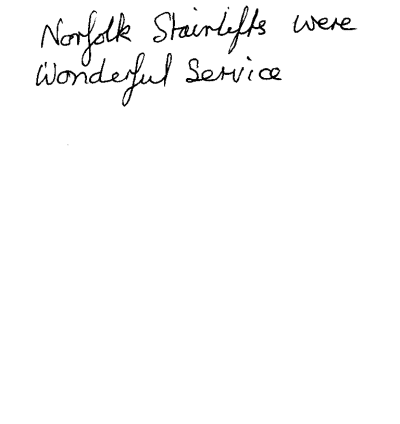 Norfolk Stairlifts were
Wonderful Service